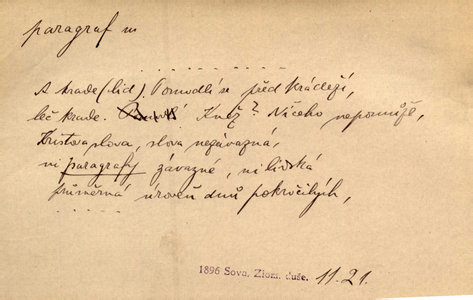 paragraf m
. . . . . . . . . .
A krade (lid). Pomodlí se před krádeží,
leč krade. Kněz? Ničeho nepomůže,
Kristova slova, slova nezávazná,
ni paragrafy závazné, ni lidská
průměrná úroveň dnů pokročilých,
. . . . .
1896 Sova, Zlom. duše. 11.21.